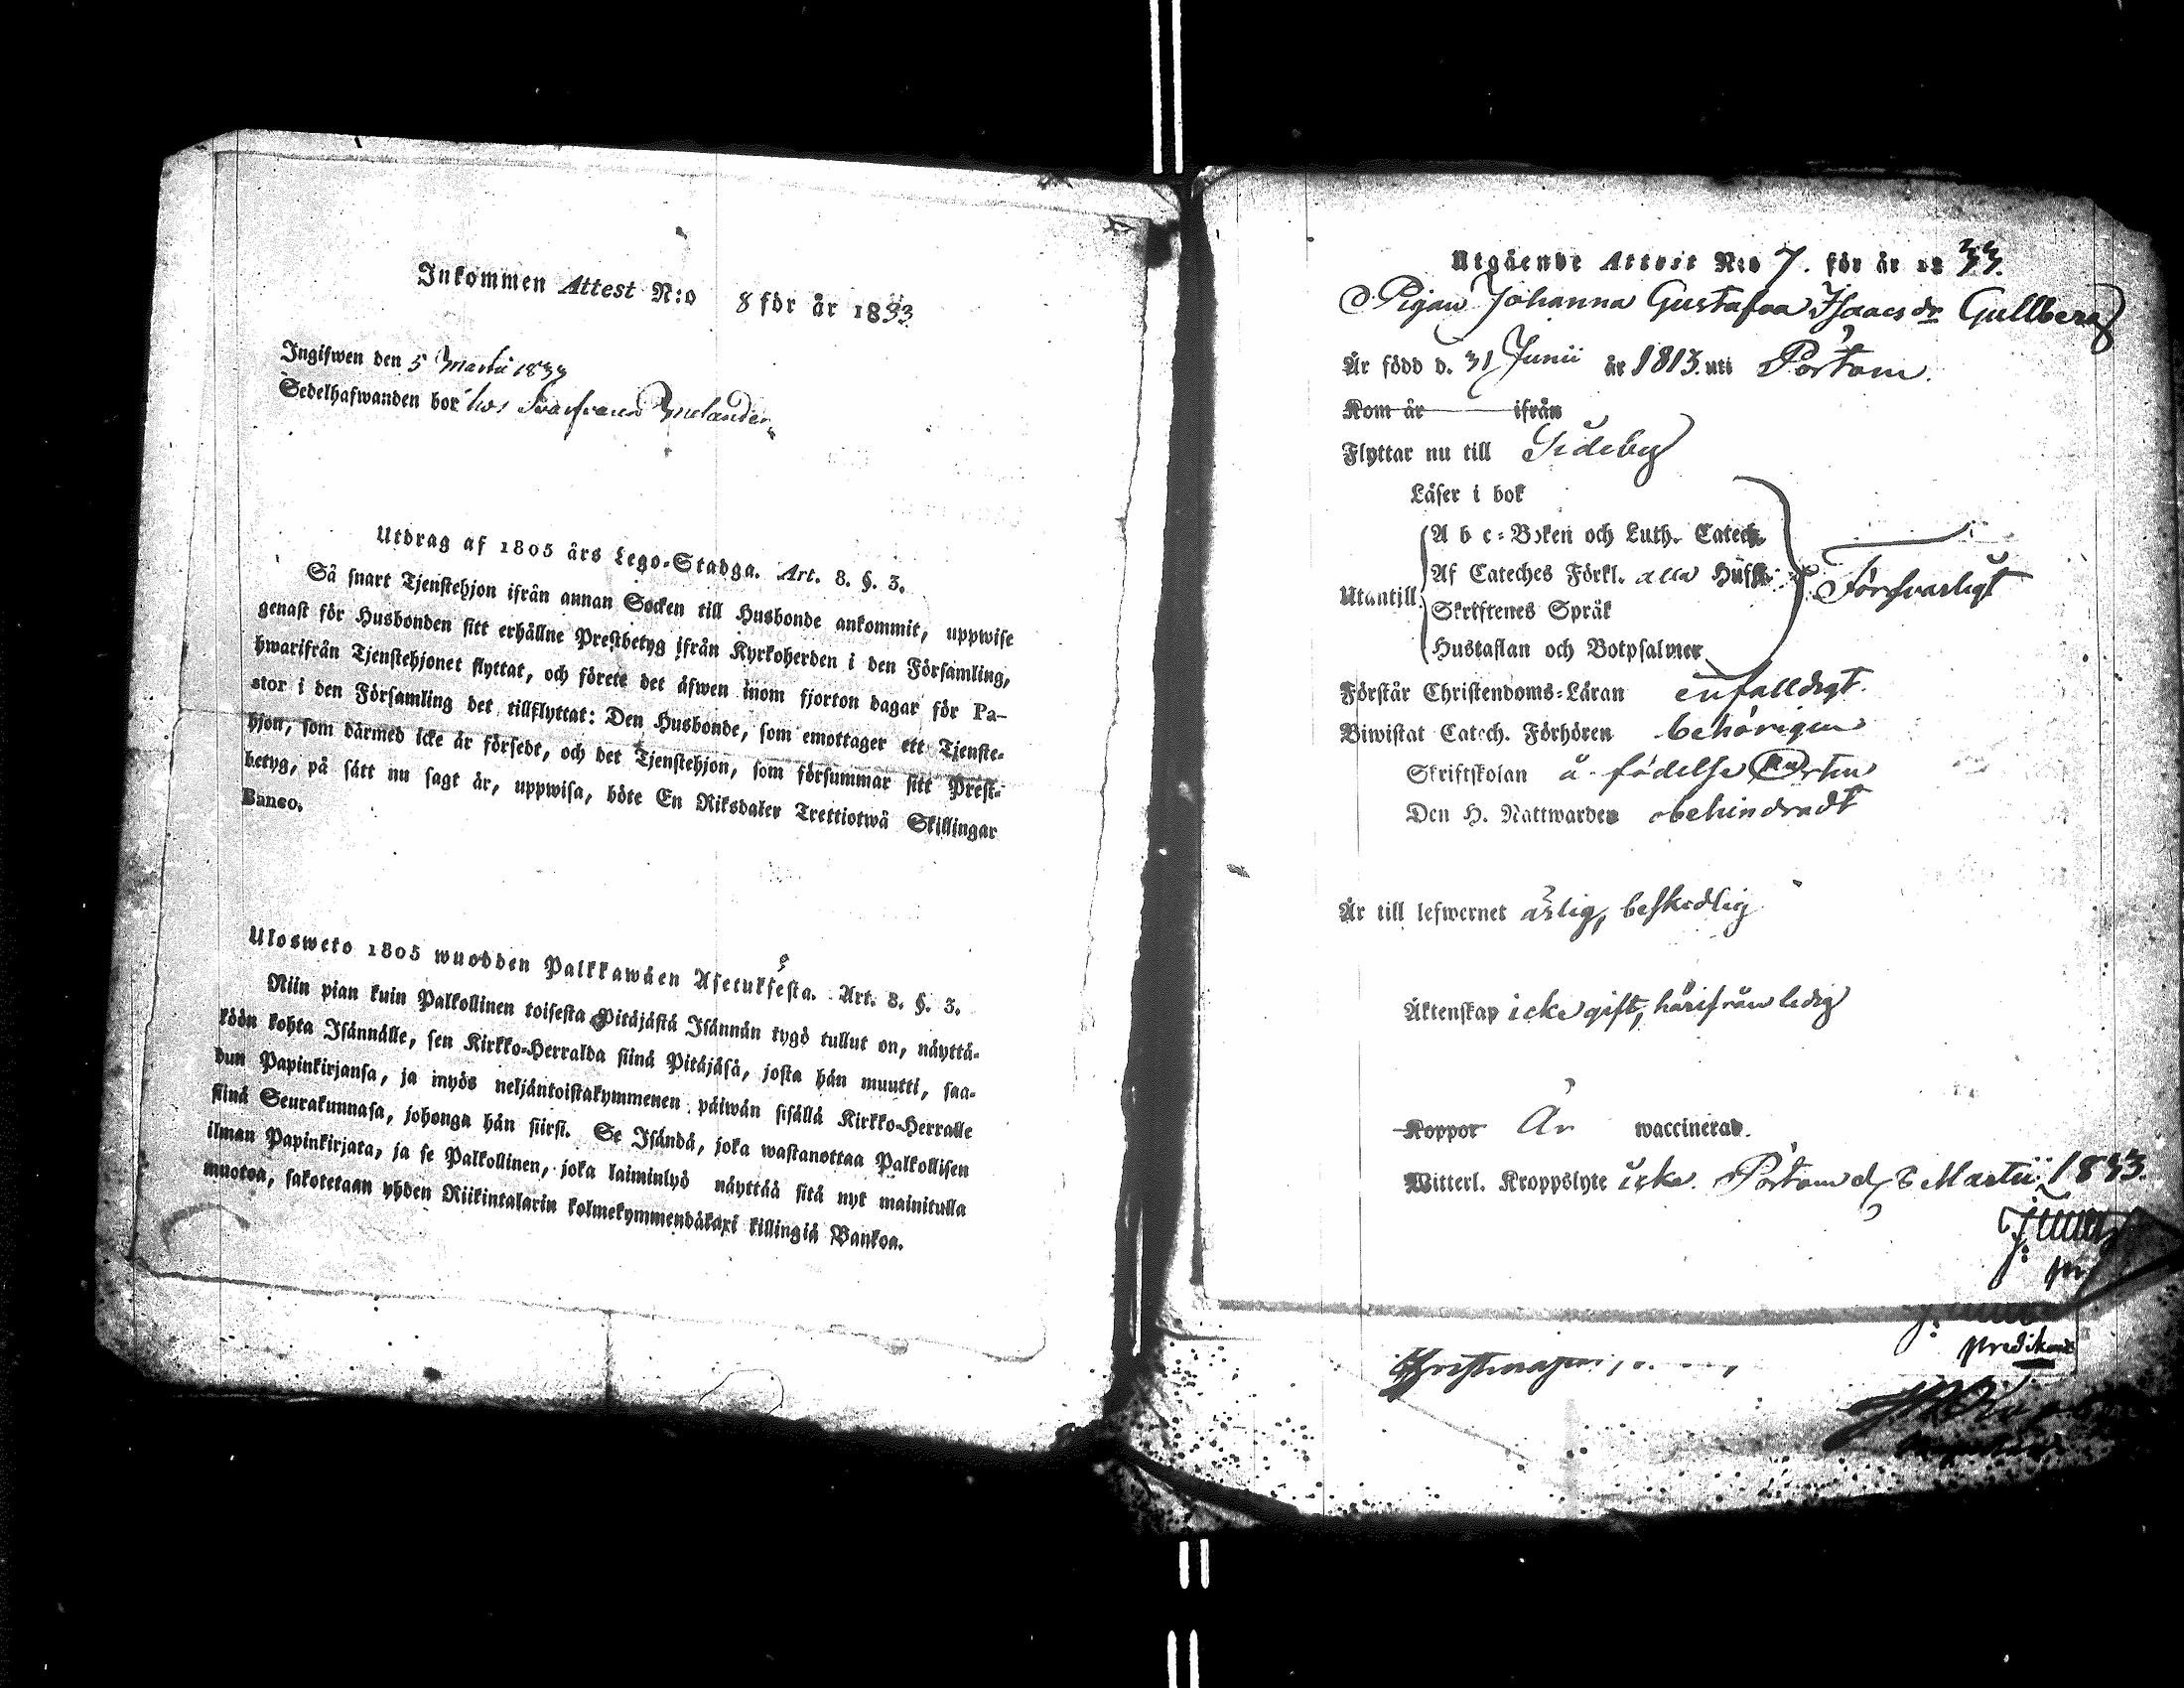 Inkommen Attest N:o 8 för år 1833
Ingifwen den 5 Martii 1833
Sedelhafwanden bor hos
Utdrag af 1805 års Lego-Stadga. Art. 8. §. 3.
Så snart Tjenstehjon ifrån annan Socken till Husbonde ankommit, uppwise
genast för Husbonden sitt erhållne Prestbetyg ifrån Kyrkoherden i den Församling,
hwarifrån Tjenstehjonet flyttat, och förete det äfwen inom fjorton dagar för Pa-
stor i den Församling det tillflyttat: Den Husbonde, som emottager ett Tjenste-
hjon, som därmed icke är försedt, och det Tjenstehjon, som försummar sitt Prest-
betyg, på sätt nu sagt är, uppwisa, böte En Riksdaler Trettiotwå Skillingar
Banco.
Ulosweto 1805 wuodden Palkkawäen Asetuksesta. Art. 8. §. 3.
Niin pian kuin Palkollinen toisesta Pitäjästä Isännän tygö tullut on, näyttä-
köön kohta Isännälle, sen Kirkko-Herralda siinä Pitäjäsä, josta hän muutti, saa-
dun Papinkirjansa, ja myös neljäntoistakymmenen päiwän sisällä Kirkko-Herralle
siinä Seurakunnasa, johonga hän siirsi. Se Isändä, joka wastanottaa Palkollisen
ilman Papinkirjata, ja se Palkollinen, joka laiminlyö näyttää sitä nyt mainitulla
muotoa, sakotetaan yhden Riikintalarin kolmekymmendäkaxi killingiä Bankoa.
Utgående Attest N:o 7. för år 18 33.
Pigan Johanna Gustafva Isaacs dr Gullberg
Är född d. 31 Junii år 1813. uti Pörtom.
Kom år ifrån
Flyttar nu till Sideby
Läser i bok
A b c-Boken och Luth. Catech.
Af Cateches Förkl. alla Hufst. Försvarligt
Utantill Skriftenes Språk
Hustaflan och Botpsalmer
Förstår Christendoms-Läran enfalldigt.
Biwistat Catech. Förhören behörigen
Skriftskolan å födelse Orten
Den H. Nattwarden obehindradt
Är till lefwernet ärlig, beskedlig
Äktenskap icke gift, härifrån ledig
Koppor Är waccinerad.
Witterl. Kroppslyte icke. Pörtom d. 3 Martii 1833.
Predikant